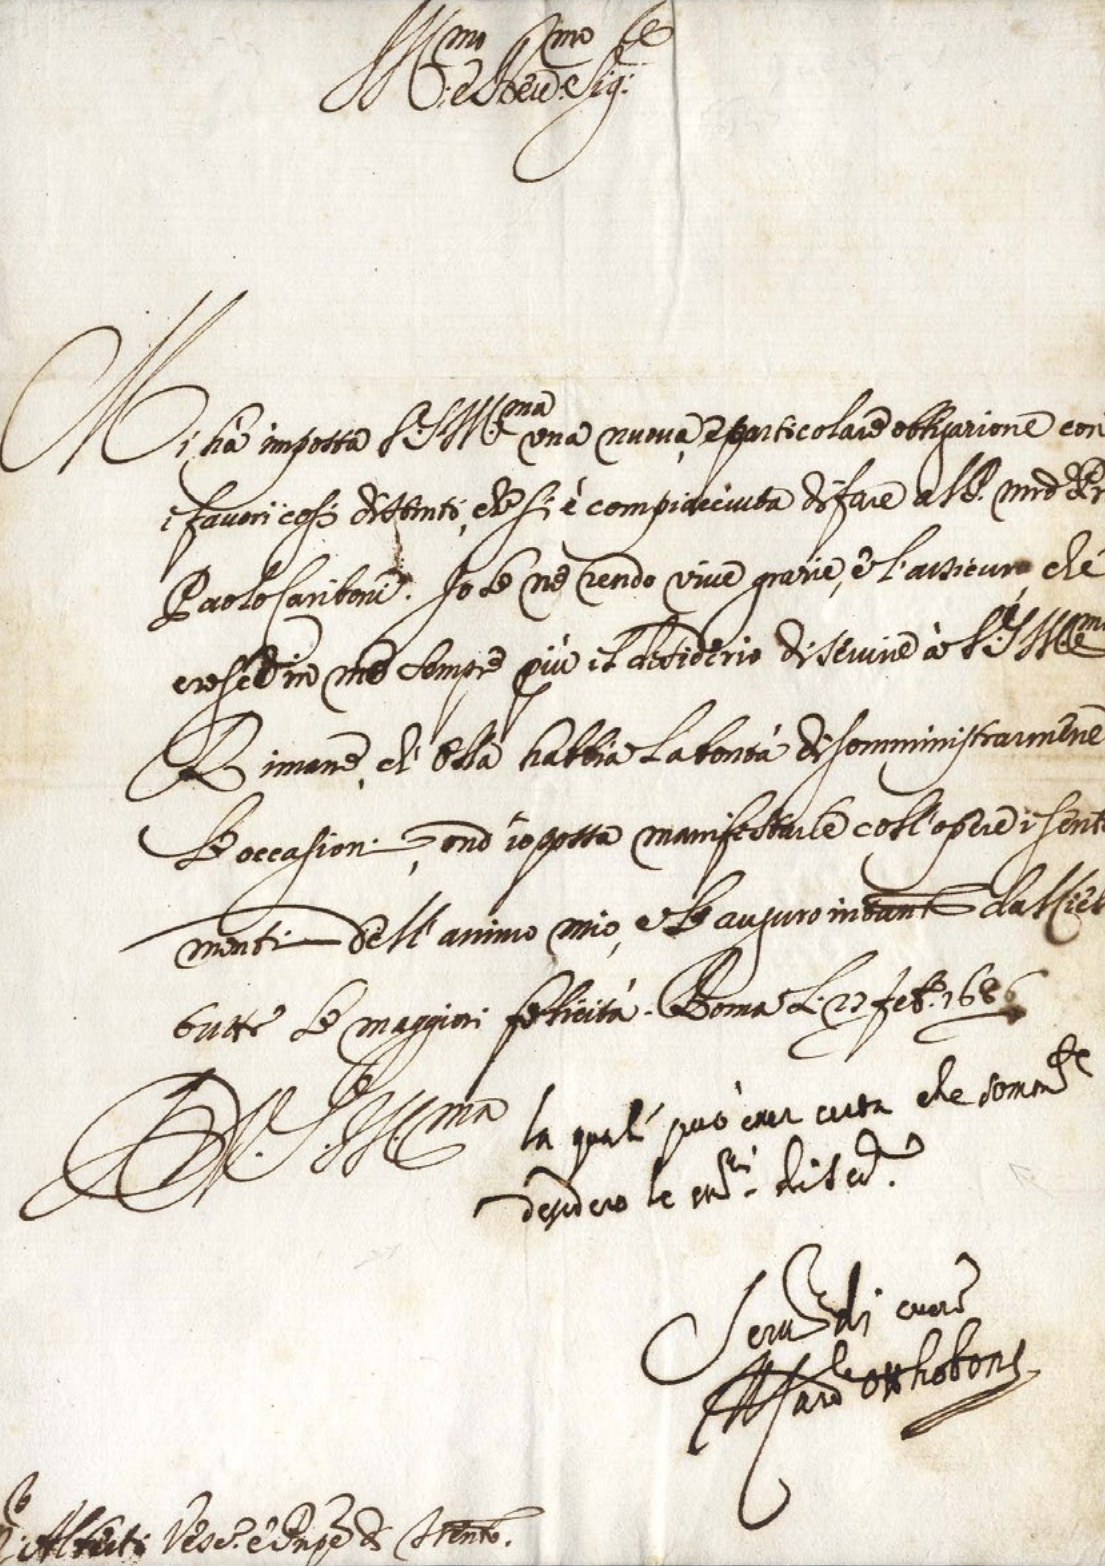 Ill.mo e Rev.mo Sig.re
Mi hà imposta V.S. Ill.ma una nuova, e particolare obligazione con
i favori così distinti, che si è compiaciuta di fare al P. mro Fr
Paolo Cariboni. Io le ne rendo vive grazie, e l'assicuro che
cresce in me sempre più il desiderio di servire à V.S. Ill.ma
Rimane, ch'ella habbia la bontà di somministrarmene
le occasioni, ond'io possa manifestarle coll'opere i senti
menti dell'animo mio, e le auguro intanto dal Ciel
tutte le maggiori felicità. Roma li 22 feb. 1686
D V.S. Ill.ma la qual' può esser certa che somm.te
desidero le di
Serv.re di cuore
Il Card.le Otthoboni
Alberti Vesc.o e Pnpe di Trento.